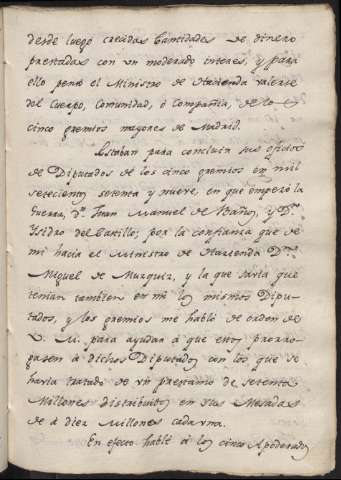 desde luego crecidas Cantidades de dinero
prestadas con un moderado interes, y para
ello pensó el Ministro de Hacienda valerse
del Cuerpo, Comunidad, ó Compañia, de los
cinco gremios mayores de Madrid.
Estaban para concluir sus oficios
de Diputados de los cinco gremios en mil
setecientos setenta y nueve, en que empezó la
Guerra, Dn. Juan Manuel de Baños, y Dn.
Ysidro del Castillo; por la confianza que de
mi hacia el Ministro de Hacienda Dn.
Miguel de Muzquiz, y la que savia que
tenian tambien en mi los mismos Dipu-
tados, y los gremios me habló de orden de
V. M. para ayudar á que estos prorro-
gasen á dichos Diputados con los que se
havia tratado de un prestamo de setenta
Millones distribuitos en sus Mesadas
de á diez Millones cada una.
En efecto hablé á los cinco Apoderados